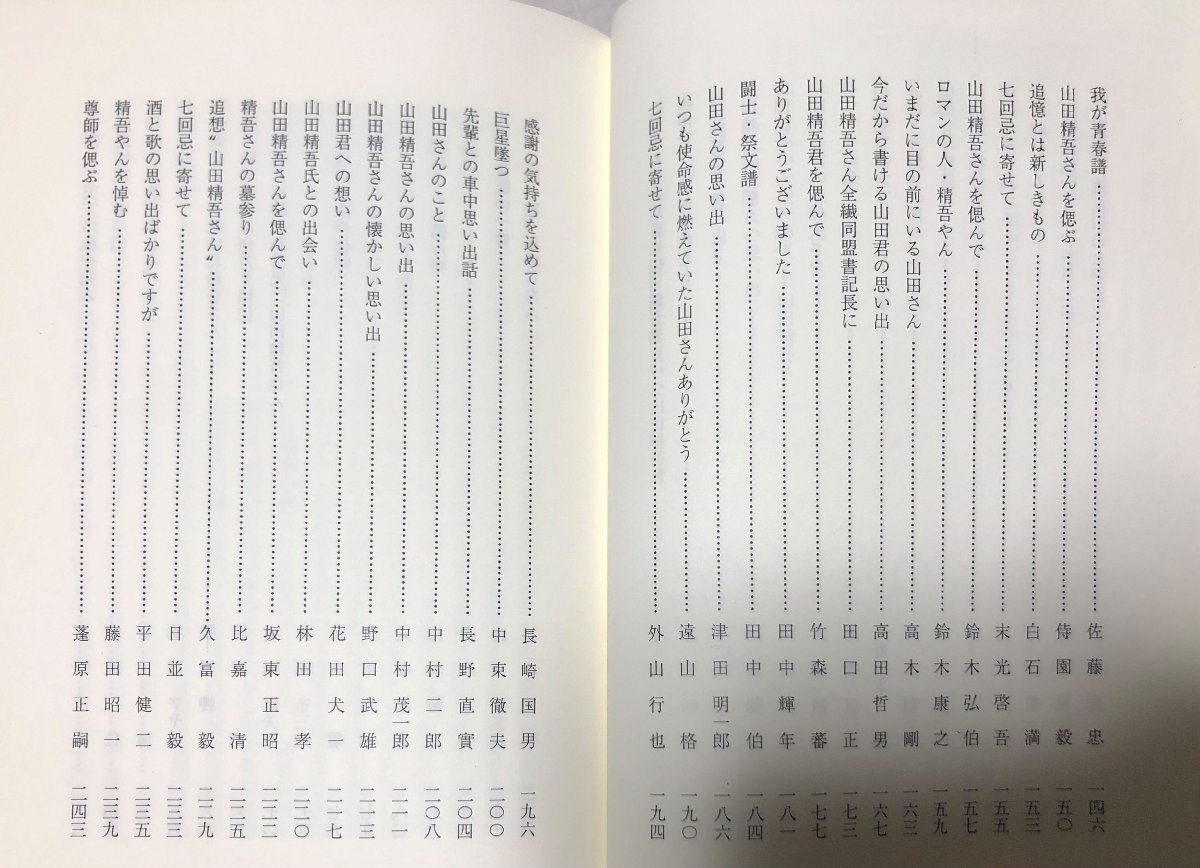 我が青春譜……佐藤忠 一四六
山田精吾さんを偲ぶ……侍園毅 一五〇
追憶とは新しきもの……白石満 一五三
七回忌に寄せて……末光啓吾 一五五
山田精吾さんを偲んで……鈴木弘伯 一五七
ロマンの人・精吾やん……鈴木康之 一五九
いまだに目の前にいる山田さん……高木剛 一六三
今だから書ける山田君の思い出……高田哲男 一六七
山田精吾さん全繊同盟書記長に……田口正 一七三
山田精吾君を偲んで……竹森蕃 一七七
ありがとうございました……田中輝年 一八一
闘士・祭文譜……田中伯 一八四
山田さんの思い出……津田明一郎 一八六
いつも使命感に燃えていた山田さんありがとう……遠山格 一九〇
七回忌に寄せて……外山行也 一九四
感謝の気持ちを込めて……長崎国男 一九六
巨星墜つ……中東徹夫 二〇〇
先輩との車中思い出話……長野直實 二〇四
山田さんのこと……中村二郎 二〇八
山田精吾さんの思い出……中村茂一郎 二一一
山田精吾さんの懐かしい思い出……野口武雄 二一三
山田君への想い……花田犬一 二一七
山田精吾氏との出会い……林田孝 二二〇
山田精吾さんを偲んで……坂東正昭 二二二
精吾さんの墓参り……比嘉清 二二五
追想〝山田精吾さん〟……久富毅 二二九
七回忌に寄せて……日並毅 二三三
酒と歌の思い出ばかりですが……平田健二 二三五
精吾やんを悼む……藤田昭一 二三九
尊師を偲ぶ……蓬原正嗣 二四三